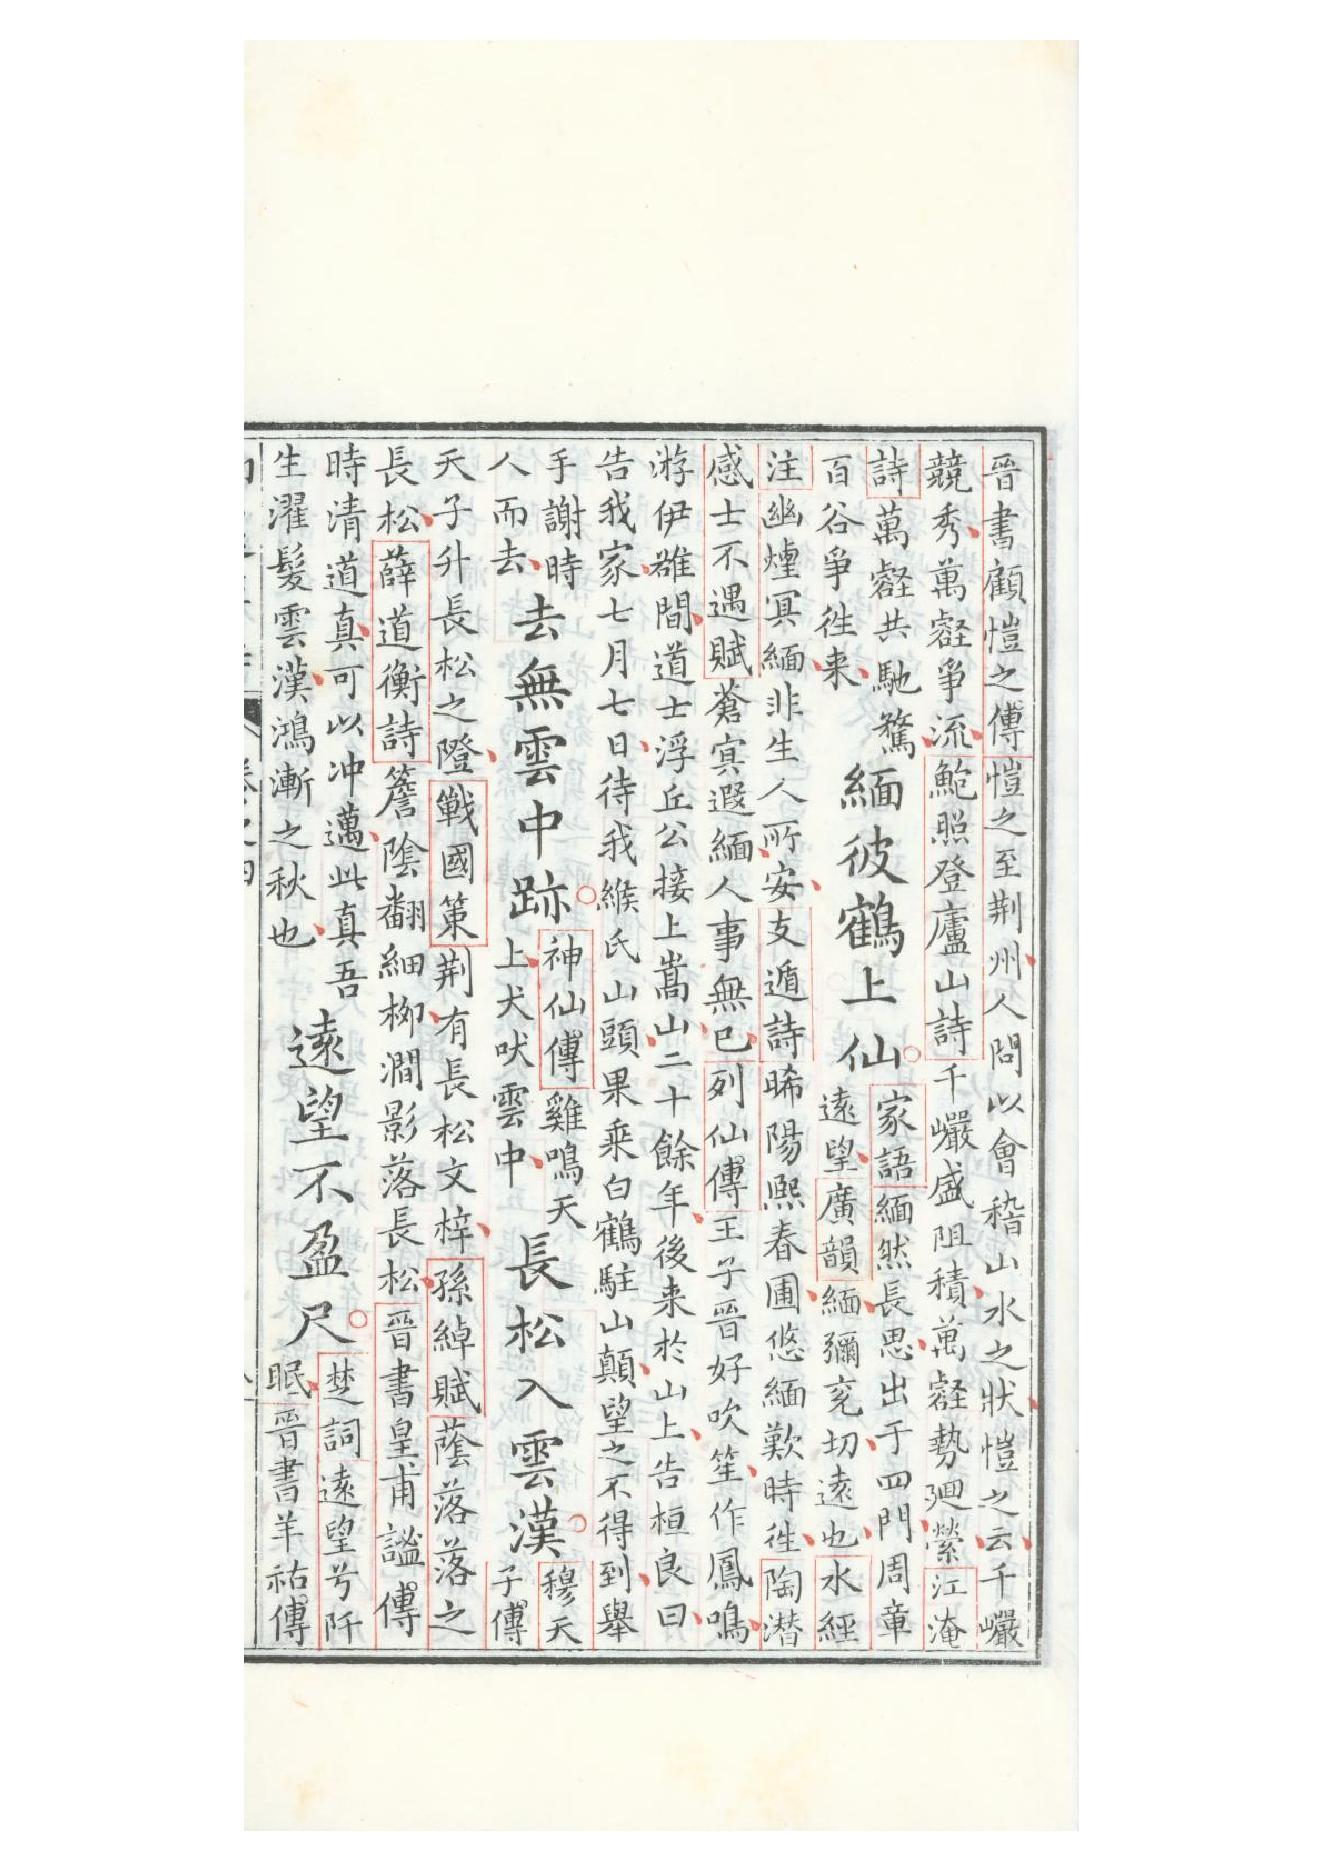 晉書顧愷之傳愷之至荆州人問以會稽山水之狀愷之云千巖
競秀萬壑爭流鮑照登廬山詩千巖盛阻積萬壑勢廻縈江淹
詩萬壑共馳騖
百谷爭徃来
緬彼鶴上仙
家語緬然長思出于四門周章
遠望廣韻緬彌兖切遠也水經
注幽堙冥緬非生人所安支遁詩晞陽熙春圃悠緬歎時徃陶潛
感士不遇賦蒼㝠遐緬人事無已列仙傳王子晉好吹笙作鳳鳴
游伊雒間道士浮丘公接上嵩山二十餘年後来於山上告桓良曰
告我家七月七日待我緱氏山頭果乘白鶴駐山顛望之不得到舉
手謝時
人而去
去無雲中跡
神仙傳雞鳴天
上犬吠雲中
長松入雲漢
穆天
子傳
天子升長松之隥戰國策荆有長松文梓孫綽賦蔭落落之
長松薛道衡詩簷陰翻細栁澗影落長松晉書皇甫謐傳
時清道真可以冲邁此真吾
生濯髮雲漢鴻漸之秋也
遠望不盈尺
楚詞遠望兮阡
眠晉書羊祜傳